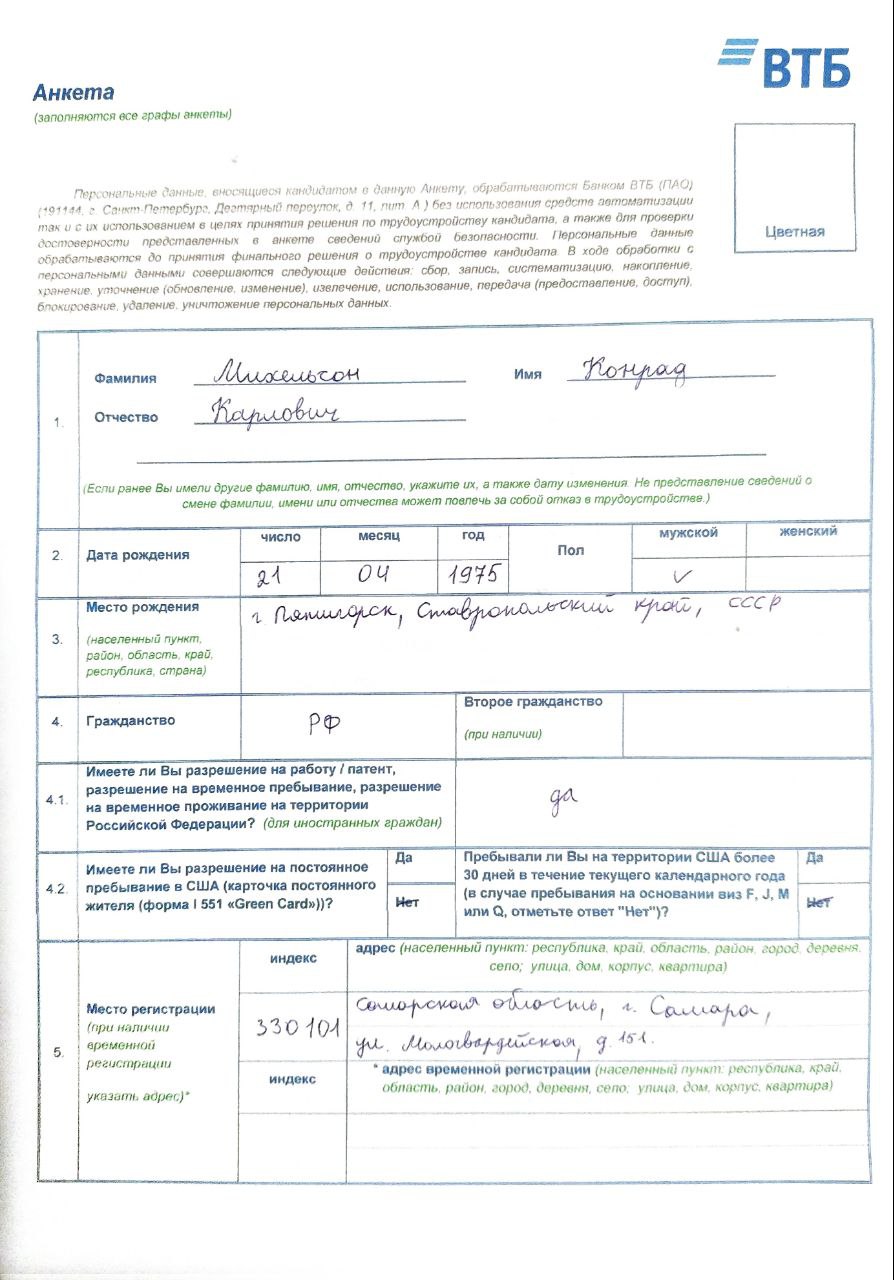 ВТБ
Анкета
(заполняются все графы анкеты)
Цветная
Персональные данные, вносящиеся кандидатом в данную Анкету, обрабатываются Банком ВТБ (ПАО)
(191144, г. Санкт-Петербург, Дегтярный переулок, д. 11, лит. А ) без использования средств автоматизации
так и с их использованием в целях принятия решения по трудоустройству кандидата, а также для проверки
достоверности представленных в анкете сведений службой безопасности. Персональные данные
обрабатываются до принятия финального решения о трудоустройстве кандидата. В ходе обработки с
персональными данными совершаются следующие действия: сбор, запись, систематизацию, накопление,
хранение, уточнение (обновление, изменение), извлечение, использование, передача (предоставление, доступ),
блокирование, удаление, уничтожение персональных данных.
1.
Фамилия Михельсон Имя Конрад
Отчество Карлович
(Если ранее Вы имели другие фамилию, имя, отчество, укажите их, а также дату изменения. Не представление сведений о
смене фамилии, имени или отчества может повлечь за собой отказ в трудоустройстве.)
2. Дата рождения
число месяц год Пол мужской женский
21 04 1975 ✓
3. Место рождения
(населенный пункт,
район, область, край,
республика, страна)
г. Пятигорск, Ставропольский край, СССР
4. Гражданство РФ
Второе гражданство
(при наличии)
4.1. Имеете ли Вы разрешение на работу / патент,
разрешение на временное пребывание, разрешение
на временное проживание на территории
Российской Федерации? (для иностранных граждан)
да
4.2. Имеете ли Вы разрешение на постоянное
пребывание в США (карточка постоянного
жителя (форма I 551 «Green Card»))?
Да
Нет
Пребывали ли Вы на территории США более
30 дней в течение текущего календарного года
(в случае пребывания на основании виз F, J, M
или Q, отметьте ответ "Нет")?
Да
Нет
5. Место регистрации
(при наличии
временной
регистрации
указать адрес)*
индекс
адрес (населенный пункт: республика, край, область, район, город, деревня,
село; улица, дом, корпус, квартира)
330101
Самарская область, г. Самара,
ул. Мологвардейская, д. 151.
индекс
* адрес временной регистрации (населенный пункт: республика, край,
область, район, город, деревня, село; улица, дом, корпус, квартира)